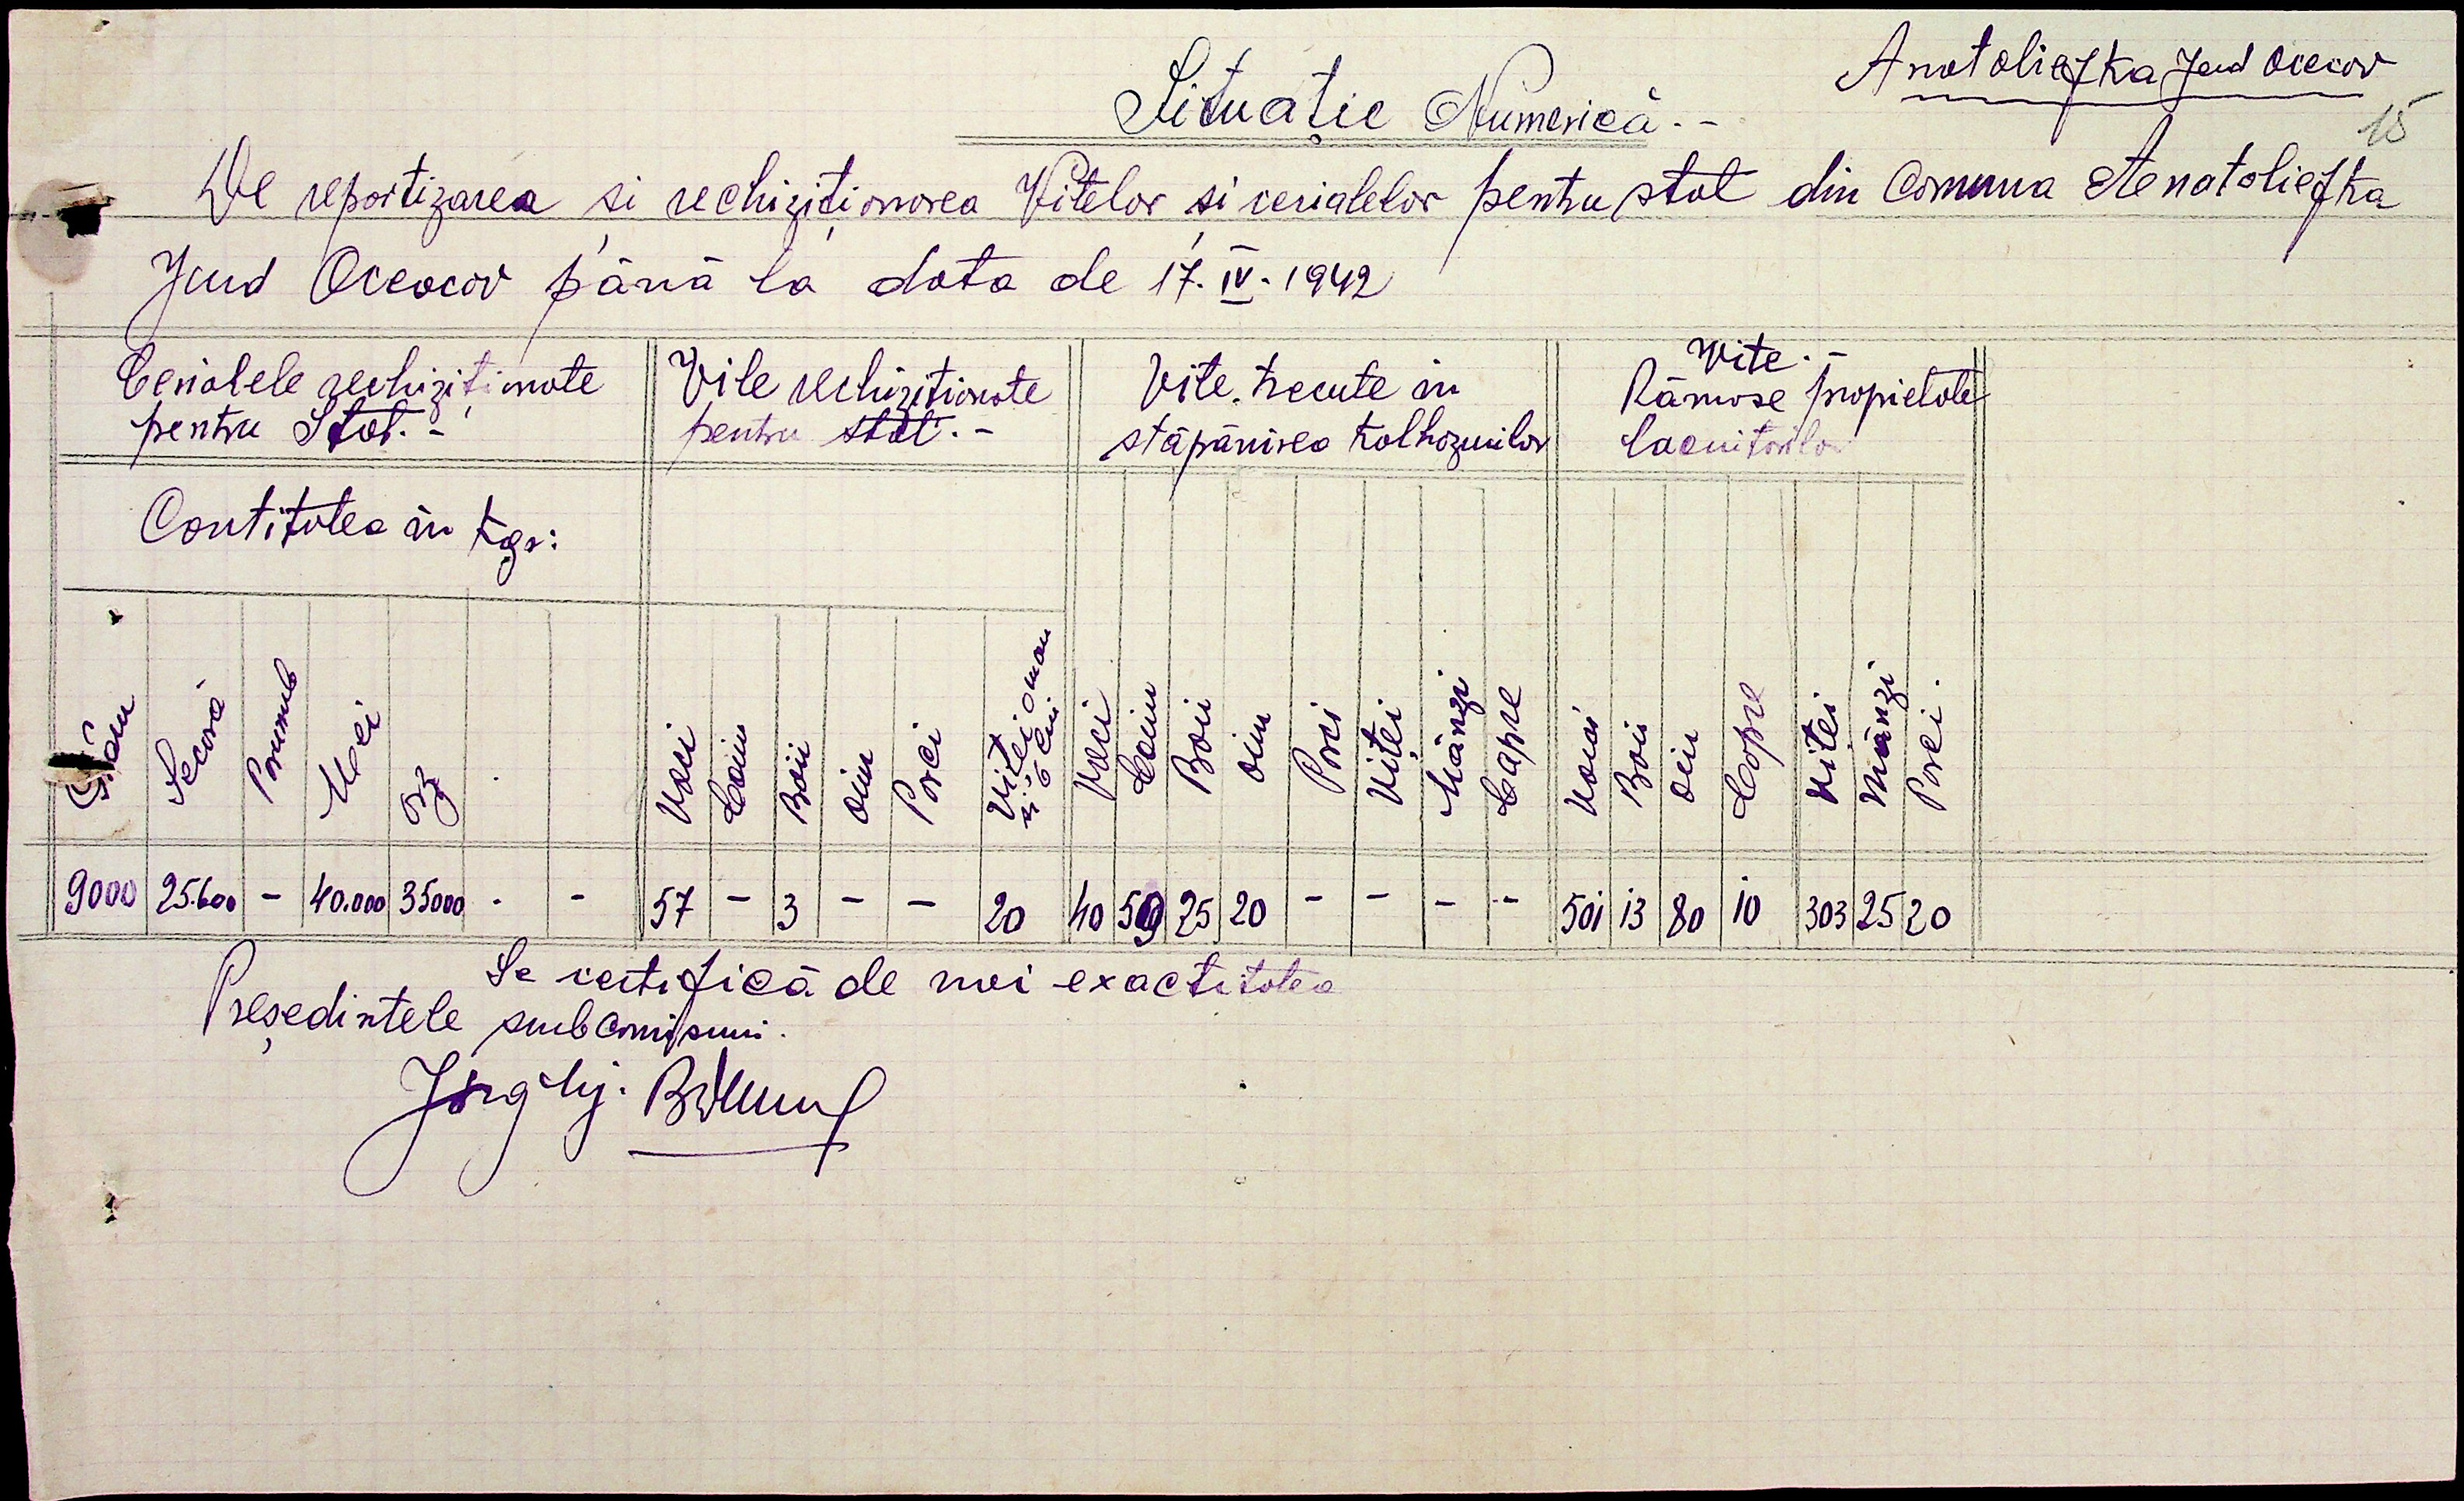 Anatoliefka Jud Oceacov
15
Situație Numerică.-
De repartizarea și rechiziționarea Vitelor și cerialelor pentru stat din Comuna Anatoliefka
Jud Oceacov până la data de 17.IV.1942
Cerialele rechiziționate
pentru Stat.-
Vile rechiziționate
pentru stat.-
Vite trecute in
stăpânirea Kolhozurilor
Vite.-
Rămase propietate
locuitorilor
Cantitatea in Kgr:
Grâu Secară Porumb Mei orz
Vaci Boii Oiu Porci Viței
Vaci Boii oiu Porci Viței Mânzi Capre
Vaci Boii oiu Capre Viței Mânzi Porci.
9000 25.600 - 40.000 35000 - - 57 - 3 - - 20 40 25 20 - - - - 501 13 80 10 303 25 20
Se certifică de noi exactitatea
Președintele subcomisuni.